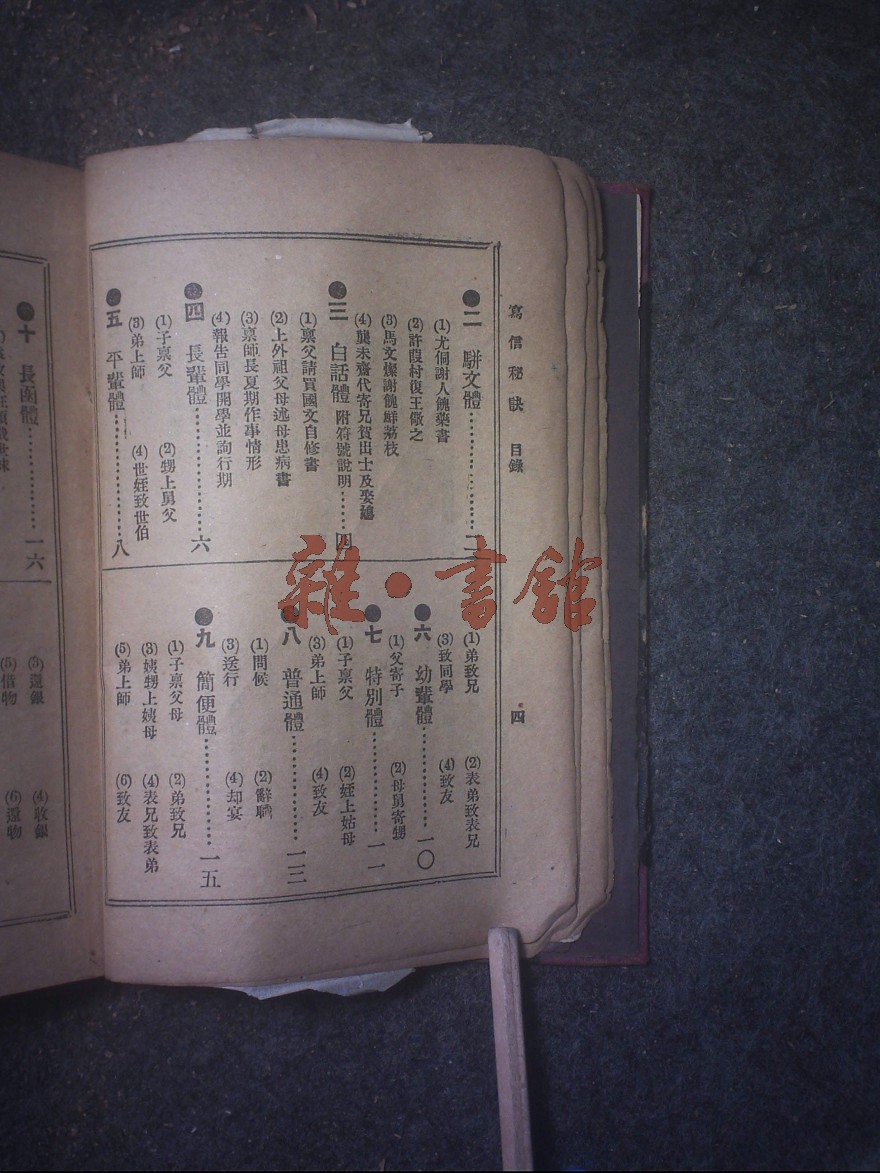 寫信秘訣 目錄
四
●二 駢文體…………二
(1)尤侗謝人餽藥書
(2)許葭村復王敬之
(3)馬文燦謝餽鮮荔枝
(4)龔未齋代寄兄賀出士及娶媳
●三 白話體 附符號說明……四
(1)禀父請買國文自修書
(2)上外祖父母述母患病書
(3)禀師長夏期作事情形
(4)報告同學開學並詢行期
●四 長輩體…………六
(1)子禀父 (2)甥上舅父
(3)弟上師 (4)世姪致世伯
●五 平輩體…………八
(1)弟致兄 (2)表弟致表兄
(3)致同學 (4)致友
●六 幼輩體…………一〇
(1)父寄子 (2)母舅寄甥
●七 特別體…………一一
(1)子禀父 (2)姪上姑母
(3)弟上師 (4)致友
●八 普通體…………一三
(1)問候 (2)辭職
(3)送行 (4)却宴
●九 簡便體…………一五
(1)子禀父母 (2)弟致兄
(3)姨甥上姨母 (4)表兄致表弟
(5)弟上師 (6)致友
●十 長函體…………一六
(3)還銀 (4)收銀
(5)借物 (6)還物
雜·書館